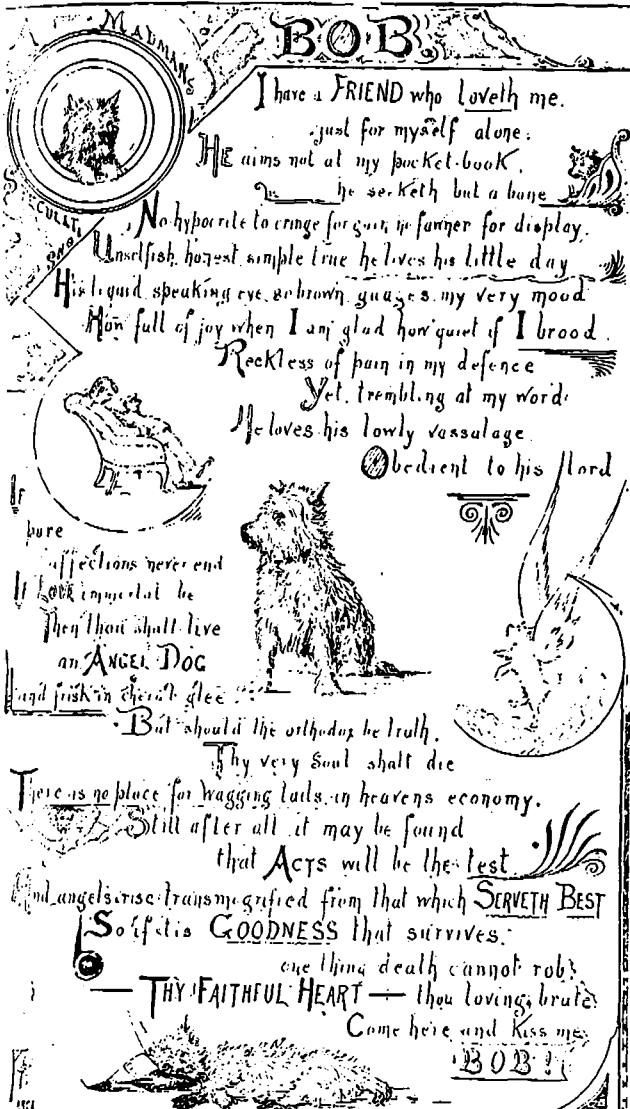 MADMANS
BOB.
I have a FRIEND who loveth me.
just for myself alone;
HE aims not at my pocket-book,
he seeketh but a bone
No hypocrite to cringe for gain, no fawner for display,
Unselfish, honest, simple true he lives his little day
His liquid speaking eye, so brown, guages my very mood
How full of joy when I am glad how quiet if I brood.
Reckless of pain in my defence
Yet, trembling at my word:
He loves his lowly vassalage
Obedient to his lord
If
pure
affections never end
If Love immortal be
Then thou shalt live
an ANGEL DOG
and frisk in cherub glee
But should the orthodox be truth,
Thy very Soul shall die
There is no place for wagging tails in heavens economy.
Still after all it may be found
that ACTS will be the test
And angels rise transmogrified from that which SERVETH BEST
So if tis GOODNESS that survives,
one thing death cannot rob;
— THY FAITHFUL HEART — thou loving brute
Come here and kiss me,
BOB!